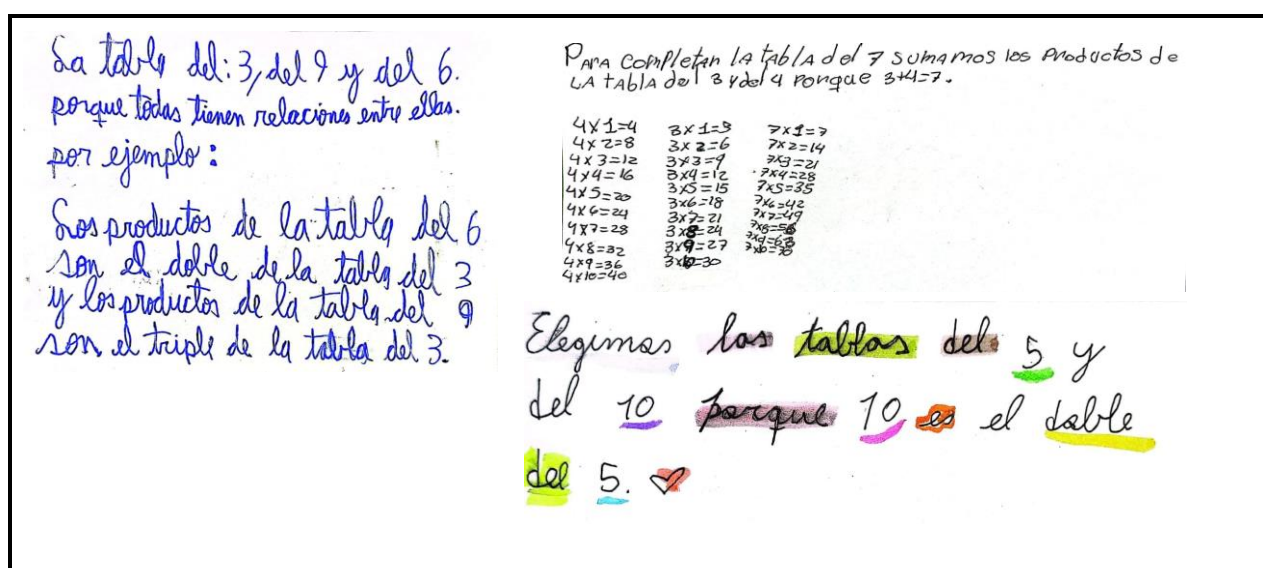 La tabla del: 3, del 9 y del 6.
porque todas tienen relaciones entre ellas.
por ejemplo:
Los productos de la tabla del 6
son el doble de la tabla del 3
y los productos de la tabla del 9
son el triple de la tabla del 3.
Para completar la tabla del 7 sumamos los productos de
la tabla del 3 y del 4 porque 3+4=7.
4x1=4
4x2=8
4x3=12
4x4=16
4x5=20
4x6=24
4x7=28
4x8=32
4x9=36
4x10=40
3x1=3
3x2=6
3x3=9
3x4=12
3x5=15
3x6=18
3x7=21
3x8=24
3x9=27
3x10=30
7x1=7
7x2=14
7x3=21
7x4=28
7x5=35
7x6=42
7x7=49
7x8=56
7x9=63
7x10=70
Elegimos las tablas del 5 y
del 10 porque 10 es el doble
del 5.